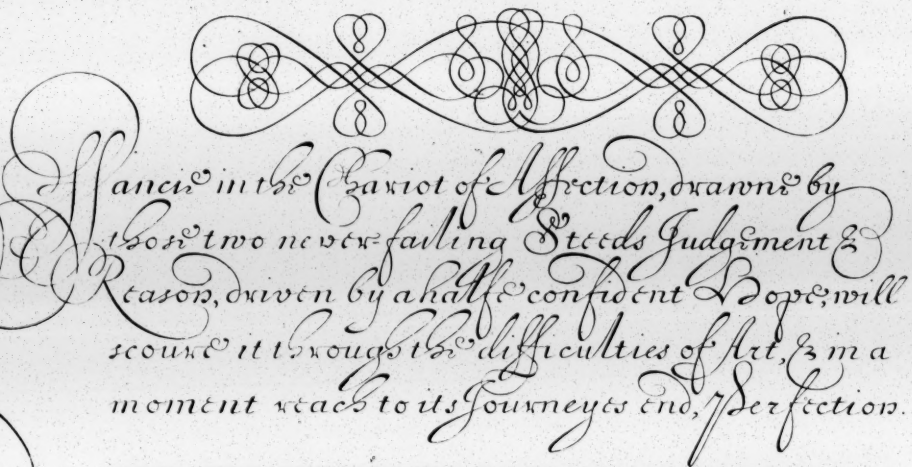 Fancie in the Chariot of Affection, drawne by
those two never-failing Steeds Judgement &
Reason, driven by a halfe confident Hope, will
scoure it through the difficulties of Art, & in a
moment reach to its Journeyes end, Perfection.